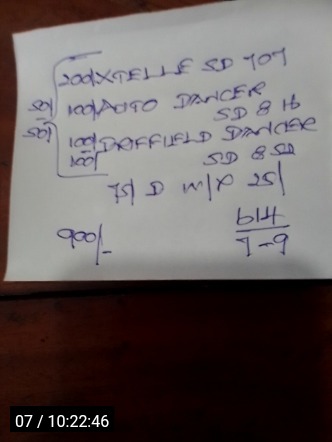 200/ XTELLE SD 707
50/ 100/ AUTO DANCER
SD 816
50/ 100/ DAFFIELD DANCER
100/ SD 852
75/ D W/P 25/
900/- 614
7-9
07 / 10:22:46